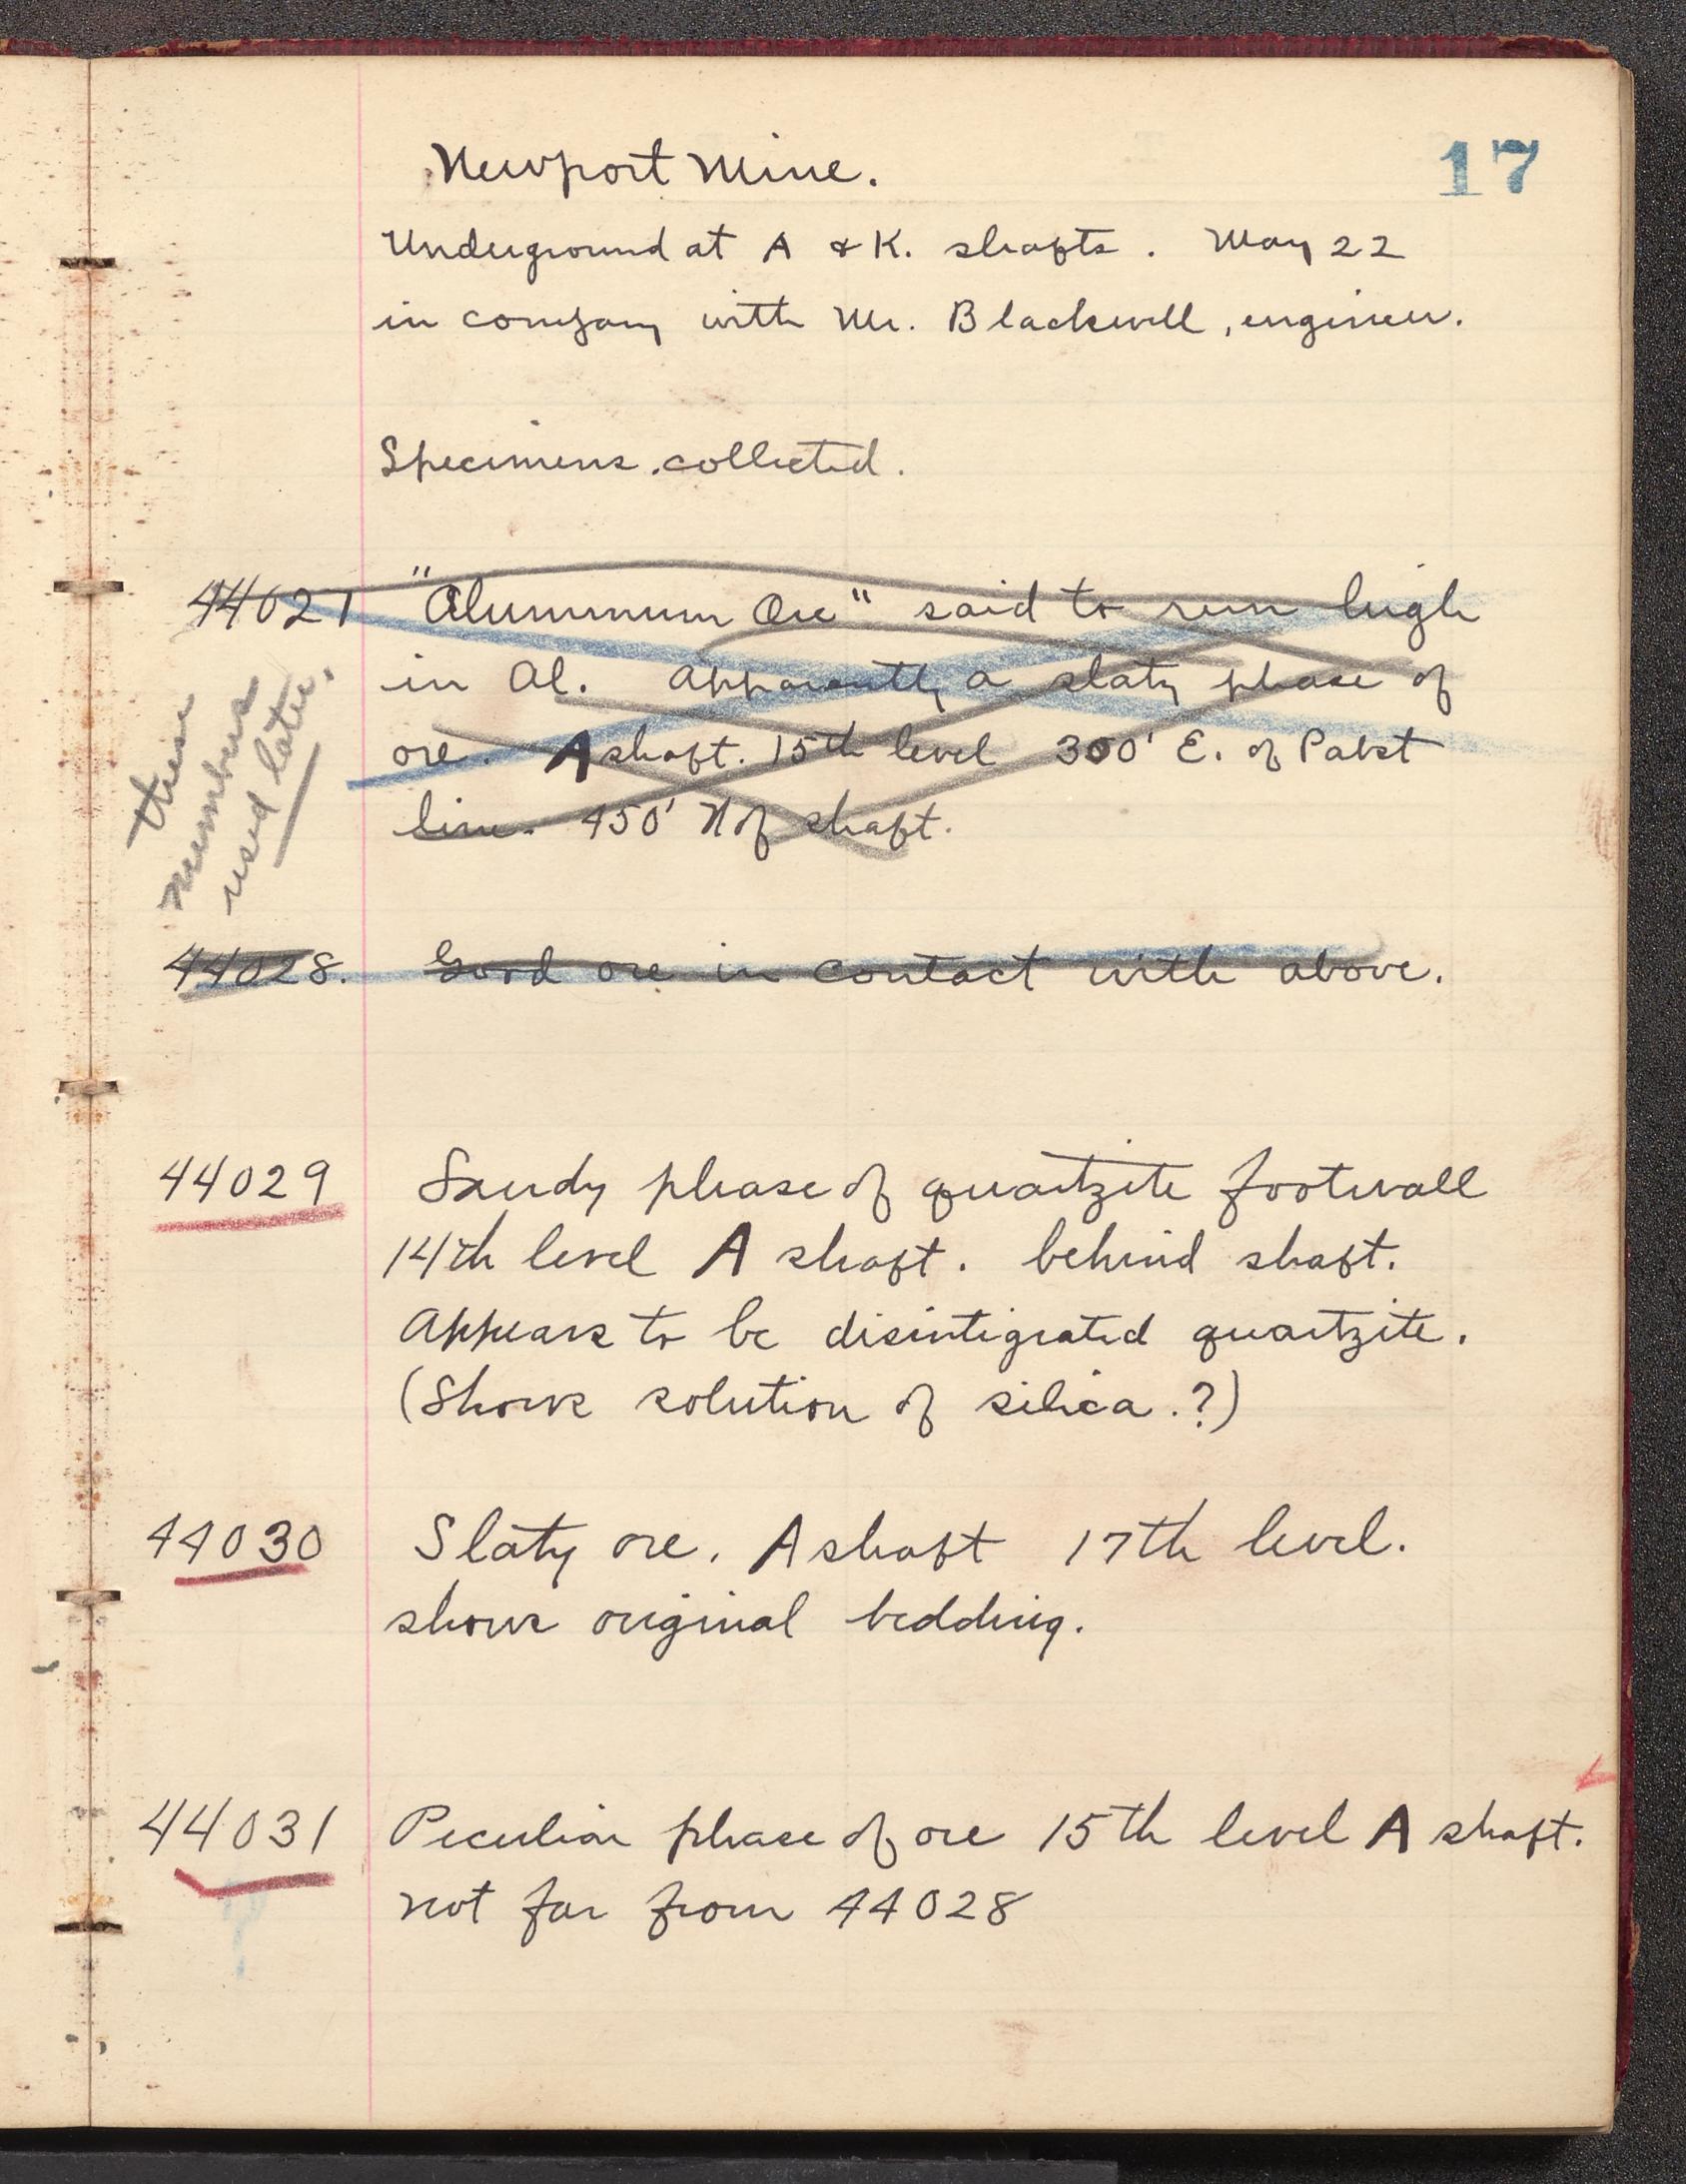 17
Newport Mine.
Underground at A & K. shafts. May 22
in company with Mr. Blackwell, engineer.
Specimens collected.
44027 "Aluminum Ore" said to run high
in Al. Apparently a slaty phase of
ore. A shaft. 15th level 300' E. of Pabst
line. 450' N of shaft.
these
numbers
used later.
44028. Good ore in contact with above.
44029 Sandy phase of quartzite footwall
14th level A shaft. behind shaft.
Appears to be disintigrated quartzite.
(Shows solution of silica.?)
44030 Slaty ore. A shaft 17th level.
shows original bedding.
44031 Peculiar phase of ore 15th level A shaft.
not far from 44028